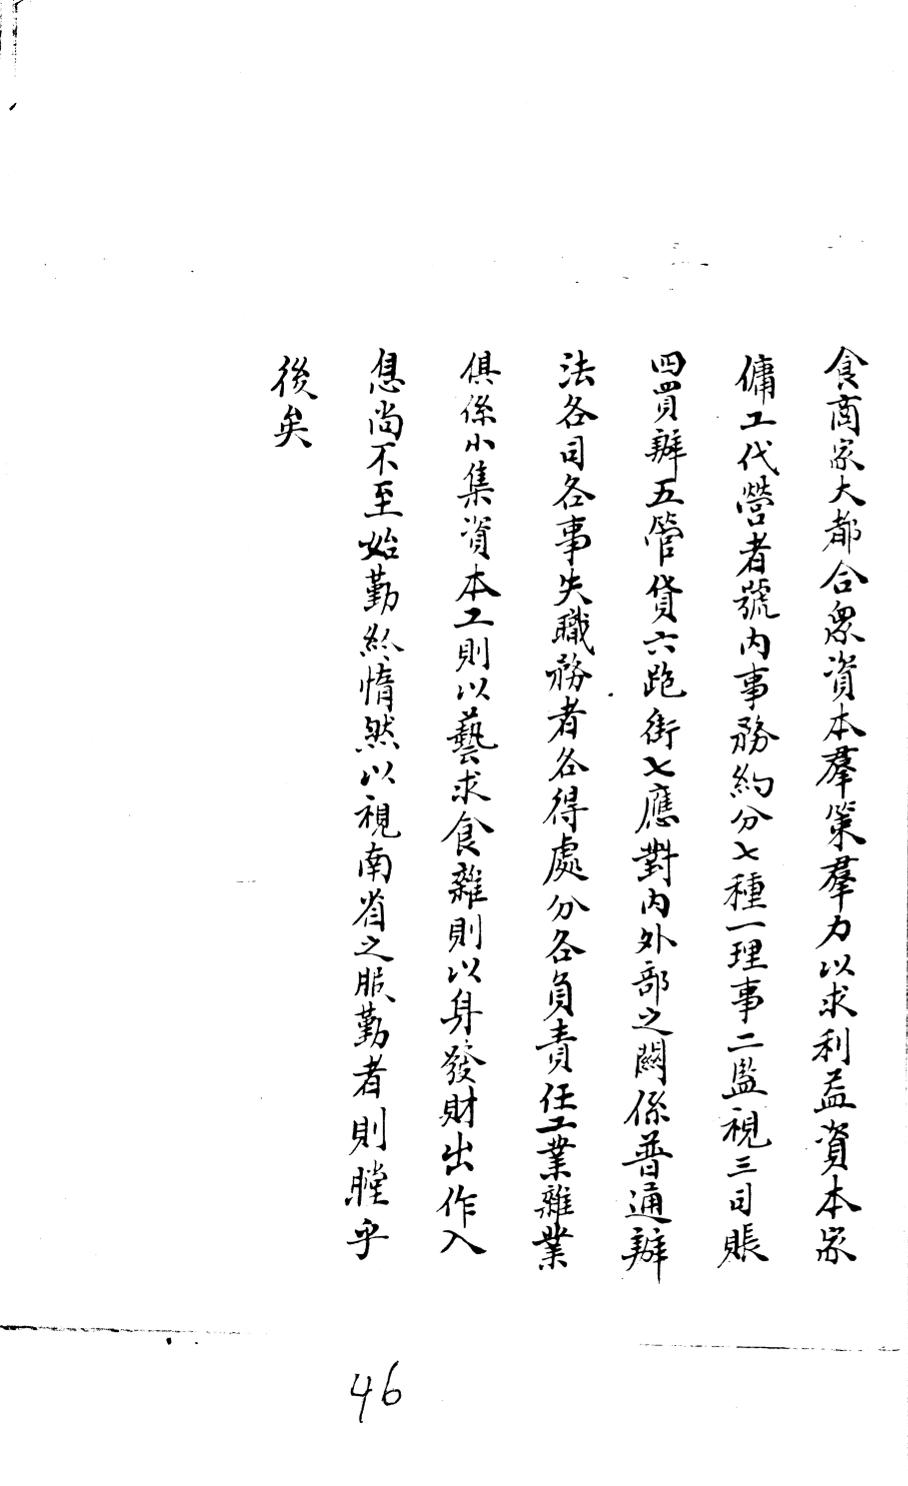 食商家大都合衆資本羣策羣力以求利益資本家
傭工代營者號内事務約分七種一理事二監視三司賬
四買辦五管貸六跑街七應對内外部之關係普通辦
法各司各事失職務者各得處分各負責任工業雜業
俱係小集資本工則以藝求食雜則以身發財出作入
息尚不至始勤終惰然以視南省之服勤者則瞠乎
後矣
46